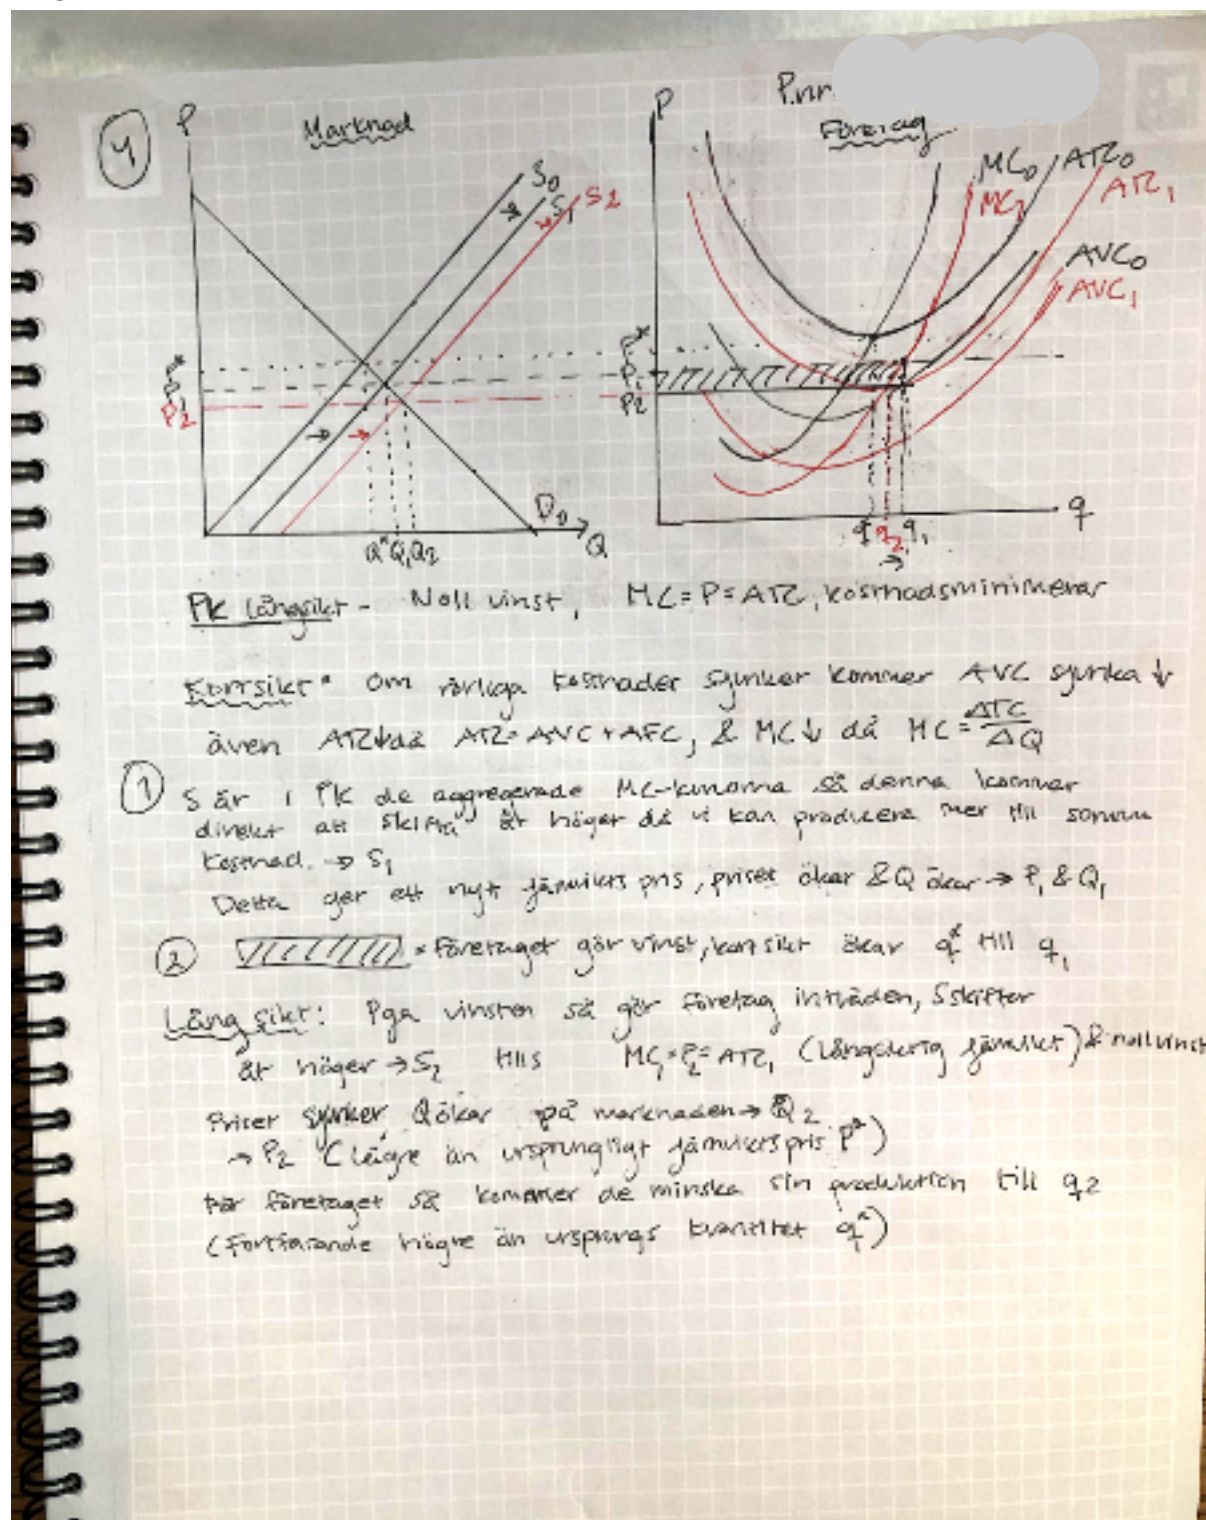 4
P
Marknad
S0
S1
S2
P*
P1
P2
D0
Q* Q1 Q2
Q
P.nr.
P
Företag
MC0
MC1
ATC0
ATC1
AVC0
AVC1
P*
P1
P2
q* q2 q1
q
PK långsikt - Noll vinst, MC = P = ATC, kostnadsminimerar
Kortsikt* Om rörliga kostnader sjunker kommer AVC sjunka ↓
även ATC↓ då ATC = AVC + AFC, & MC↓ då MC = ΔTC/ΔQ
1 S är i PK de aggregerade MC-kurvorna så denna kommer
direkt att skifta åt höger då vi kan producera mer till samma
kostnad. → S1
Detta ger ett nytt jämvikts pris, priset ökar & Q ökar → P1 & Q1
2 = Företaget gör vinst, kort sikt ökar q* till q1
Lång sikt: Pga vinsten så gör företag inträden, S skiftar
åt höger → S2 tills MC1 = P2 = ATC1 (långsiktig jämvikt) & nollvinst
Priset sjunker, Q ökar på marknaden → Q2
→ P2 (lägre än ursprungligt jämviktspris P*)
för företaget så kommer de minska sin produktion till q2
(Fortfarande högre än ursprungs kvantitet q*)